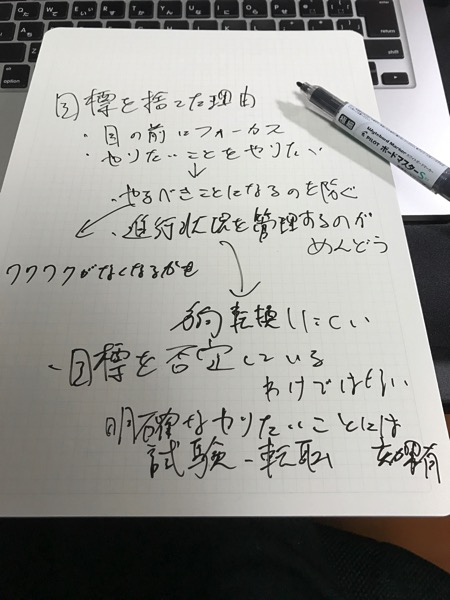 目標を捨てた理由
・目の前にフォーカス
・やりたいことをやりたい
↓
・やるべきことになるのを防ぐ
・進行状況を管理するのが
めんどう
ワクワクがなくなるかも
方向転換しにくい
・目標を否定している
わけではない
明確なやりたいことには
試験-転職 効果有
Wyteboard Marker
PILOT ボードマスターS
return
shift
option